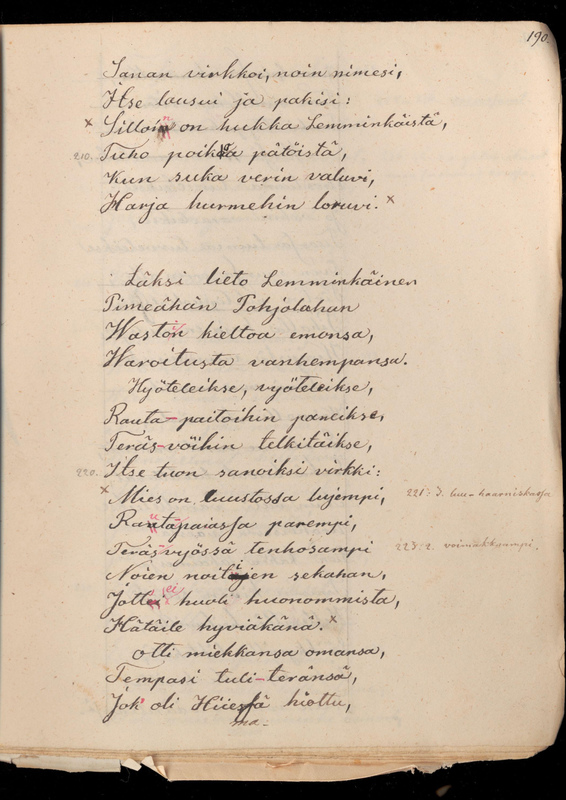 190.
Sanan virkkoi, noin nimesi,
Itse lausui ja pakisi:
× Silloin on hukka Lemminkäistä,
210. Tuho poikoa pätöistä,
Kun suka verin valuvi,
Harja hurmehin loruvi. ×
Läksi lieto Lemminkäinen
Pimeähän Pohjolahan
Waston kieltoa emonsa,
Waroitusta vanhempansa.
Hyöteleikse, vyöteleikse,
Rauta-paitoihin paneikse,
Teräs-vöihin telkitäikse,
220. Itse tuon sanoiksi virkki:
× Mies on luustossa lujempi, 221: J. luu-haarniskassa
Rautapaiassa parempi,
Teräsvyössä tenhosampi 223: 2. voimakkaampi.
Noien noitien sekahan,
Jottei huoli huonommista,
Hätäile hyviäkänä. ×
Otti miekkansa omansa,
Tempasi tuli-teränsä,
Jok' oli Hiiessä hiottu,
ma-